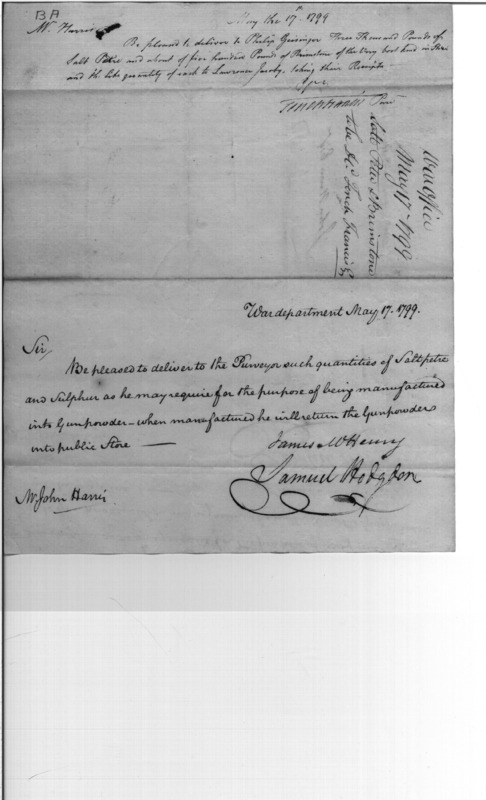 BA
May the 17th 1799
Mr Harris
Be pleased to deliver to Philip Geisinger Three Thousand Pounds of
Salt Petre and about of five hundred Pounds of Brimstone of the Very best kind in Store
and the like quantity of each to Lawrence Jacoby, taking their Receipts
Tench Francis Pur
War Office
May 17 - 1799
Salt Petre & Brimstone
to be Dd Tench Francis
War department May 17. 1799.
Sir,
Be pleased to deliver to the Purveyor such quantities of Saltpetre
and Sulphur as he may require for the purpose of being manufactured
into Gunpowder - when manufactured he will return the Gunpowder
into public Store —
James McHenry
Samuel Hodgdon
Mr. John Harris